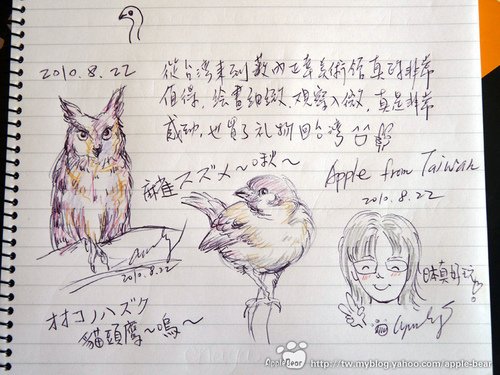 2010.8.22
從台灣來到薮內正幸美術館真的非常
值得,繪畫細緻,觀察入微,真是非常
感動,也買了禮物回台灣
麻雀スズメ~啾~
Apple from Taiwan
2010.8.22
2010.8.22
日本真好玩
オオコノハズク
貓頭鷹~嗚~
AppleBear
http://tw.myblog.yahoo.com/apple-bear